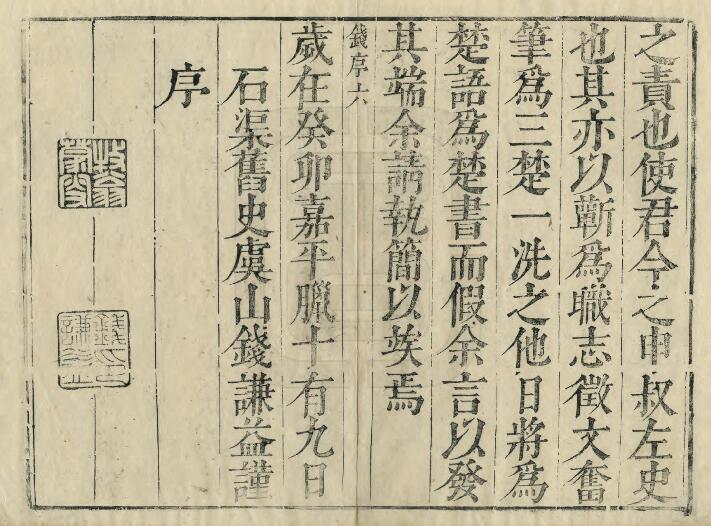 之責也使君今之申叔左史
也其亦以蘄爲職志徵文奮
筆爲三楚一洗之他日將爲
楚語爲楚書而假余言以發
其端余請執簡以俟焉
錢序六
歲在癸卯嘉平臘十有九日
石渠舊史虞山錢謙益謹
序
牧翁蒙叟
錢氏謙益